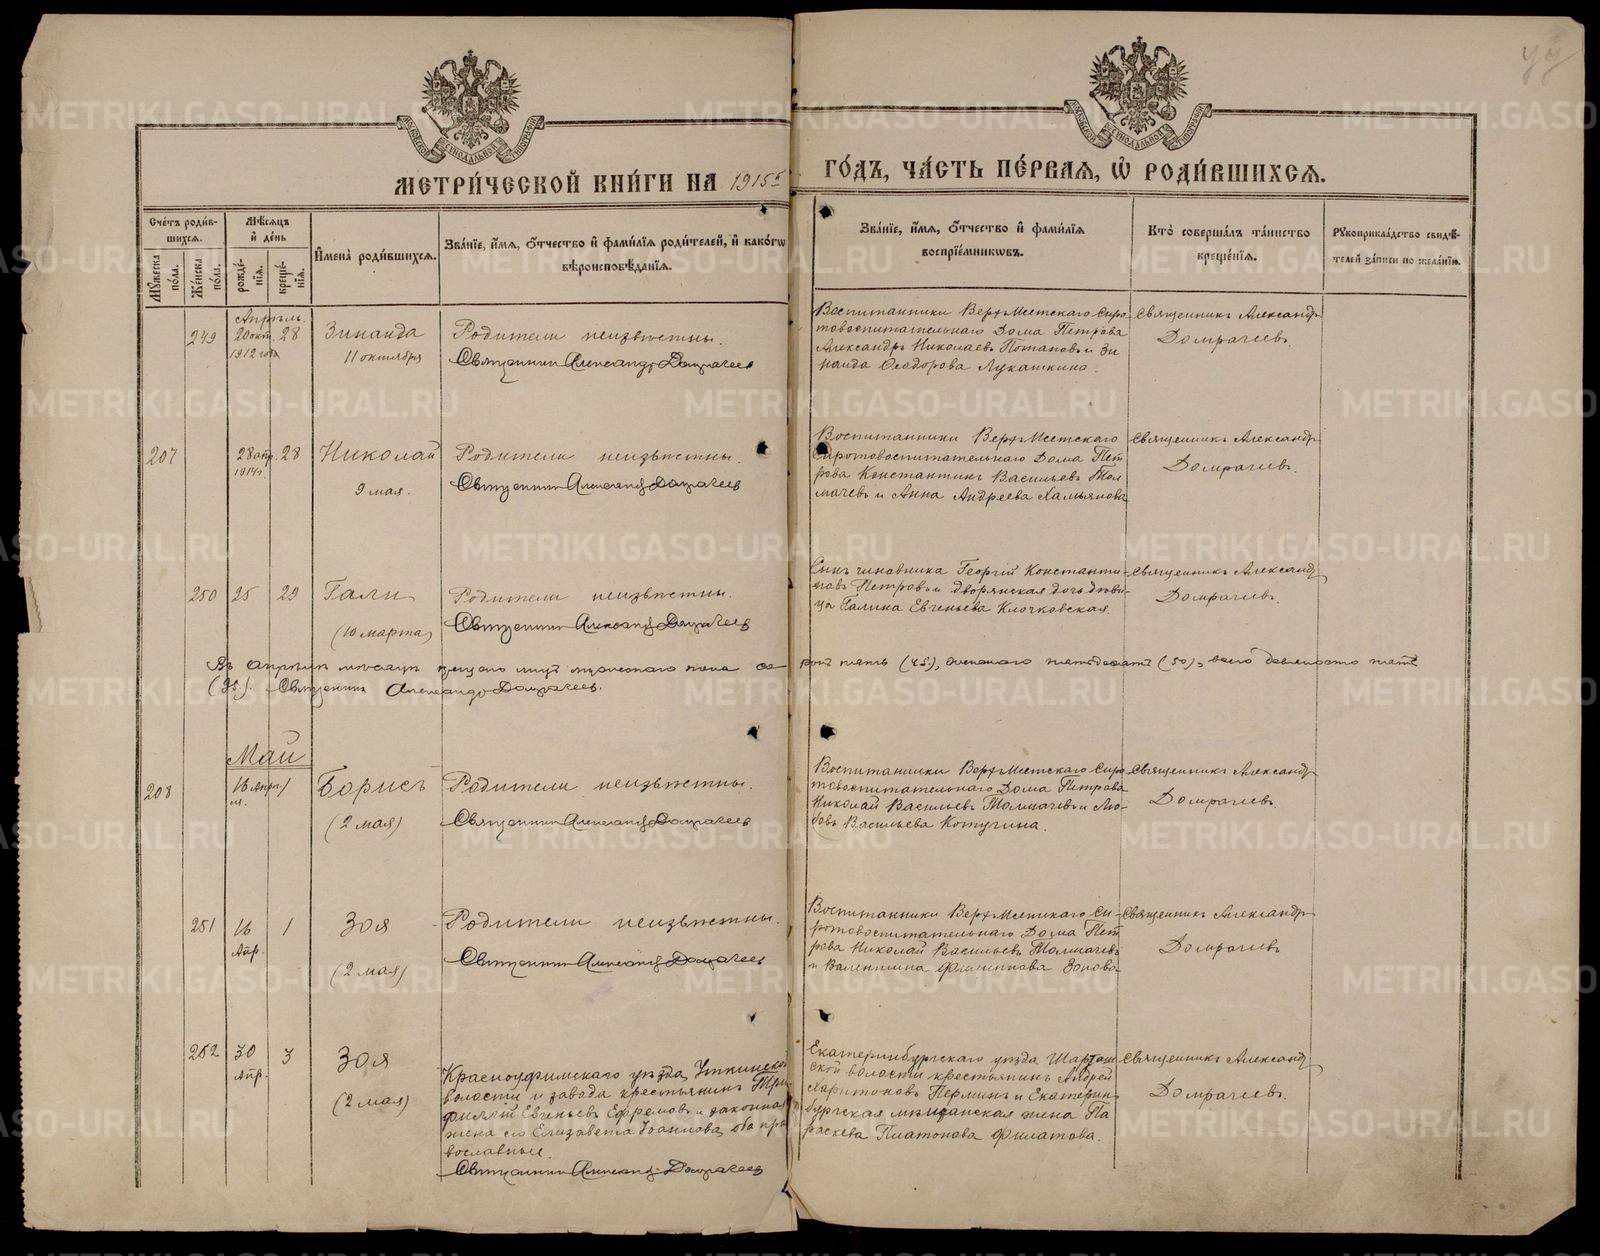 МЕТРИ́ЧЕСКОЙ КНИ́ГИ НА 1915й
ГО́ДЪ, ЧА́СТЬ ПЕ́РВАЯ, Ѡ҆ РОДИ́ВШИХСѦ.
Сче́тъ роди́в-
шихсѧ.
Мꙋ́жеска по́ла.
Же́нска по́ла.
Мѣ́сѧцъ
и҆ де́нь
рожде́-
нїѧ.
креще́-
нїѧ.
И҆мена̀ роди́вшихсѧ.
Зва́нїе, и҆́мѧ, ѻ҆́тчество и҆ фами́лїѧ роди́телей, и҆ како́гѡ
вѣроисповѣ́данїѧ.
Зва́нїе, и҆́мѧ, ѻ҆́тчество и҆ фами́лїѧ
воспрїе́мникѡвъ.
Кто̀ соверша́лъ та́инство
креще́нїѧ.
Рꙋкоприкла́дство свидѣ́-
телей за́писи по жела́нїю.
Апрѣль.
249
20 окт.
1912 года
28
Зинаида
11 октября
Родители неизвѣстны.
Священникъ Александръ Домрачевъ
Воспитанники Верхъ-Исетскаго Сиро-
товоспитательнаго Дома Петрова
Александръ Николаевъ Потаповъ и Зи-
наида Ѳеодорова Лукашкина.
Священникъ Александръ
Домрачевъ.
207
28 апр.
1914 г.
28
Николай
9 мая.
Родители неизвѣстны.
Священникъ Александръ Домрачевъ
Воспитанники Верхъ-Исетскаго
Сиротовоспитательнаго Дома Пет
рова Константинъ Васильевъ Тол
мачевъ и Анна Андреева Хамьянова
Священникъ Александръ
Домрачевъ.
250
25
29
Гали
(10 марта)
Родители неизвѣстны.
Священникъ Александръ Домрачевъ
Сынъ чиновника Георгій Константи-
новъ Петровъ и дворянская дочь дѣви-
ца Галина Евгеньева Клочковская.
Священникъ Александръ
Домрачевъ.
Въ Апрѣлѣ мѣсяцѣ крещено лицъ мужескаго пола со- рокъ пять (45), женскаго пятьдесятъ (50), всего девяносто пять
(95). Священникъ Александръ Домрачевъ.
Май
208
16 апр.
1
Борисъ
(2 мая)
Родители неизвѣстны.
Священникъ Александръ Домрачевъ
Воспитанники Верхъ-Исетскаго Сиро
товоспитательнаго Дома Петрова
Николай Васильевъ Толмачевъ и Лю-
бовь Васильева Котугина.
Священникъ Александръ
Домрачевъ.
251
16
Апр.
1
Зоя
(2 мая)
Родители неизвѣстны.
Священникъ Александръ Домрачевъ
Воспитанники Верхъ-Исетскаго Си-
ротовоспитательнаго Дома Пет
рова Николай Васильевъ Толмачевъ
и Валентина Филиппова Зонова
Священникъ Александръ
Домрачевъ
252
30
Апр.
3
Зоя
(2 мая)
Красноуфимскаго уѣзда, Уткинской
волости и завода крестьянинъ Три-
филлій Евгеньевъ Ефремовъ и законная
жена его Елизавета Іоаннова, оба пра
вославные.
Священникъ Александръ Домрачевъ
Екатеринбургскаго уѣзда Шарташ
ской волости крестьянинъ Андрей
Харитоновъ Перминъ и Екатерин-
бургская мѣщанская жена Па
раскева Платонова Филатова.
Священникъ Александръ
Домрачевъ.
METRIKI.GASO-URAL.RU